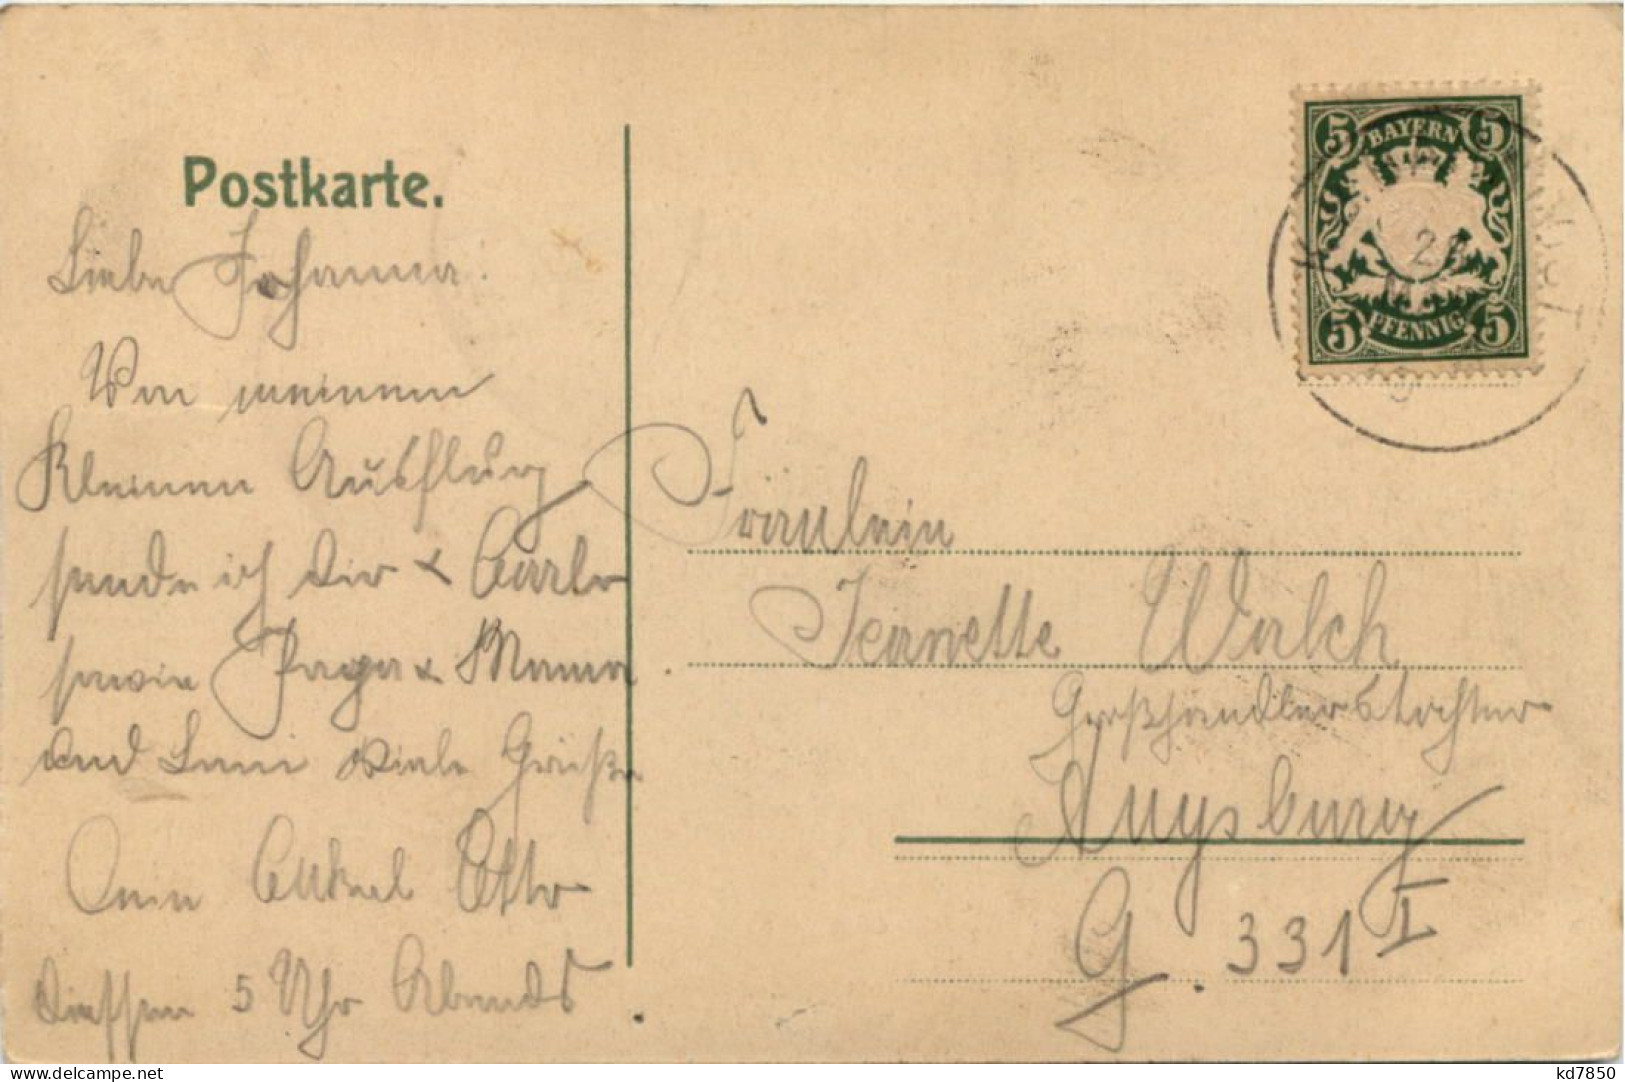 Postkarte.
Liebe Johanna.
Von meinem
Kleinen Ausflug
sende ich Dir &
sowie Papa & Mama.
und viele Grüße
Dein Onkel Otto
Diessen 5 Uhr Abends.
5 BAYERN 5
5 PFENNIG 5
Fräulein
Jeanette Walch
Großhändlerstochter
Augsburg
G. 331 I
www.delcampe.net
kd7850